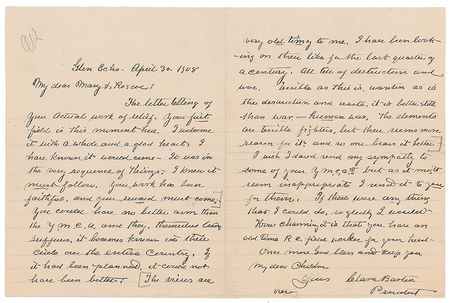 Glen Echo. April 30. 1908
My dear Mary & Roscoe:
The letter telling of
your actual work of relief. Your first
field is this moment here. I welcome
it with a whole and a glad heart. I
have known it would come - It was in
the very sequence of things. I knew it
must follow. Your work has been
faithful, and your reward must come.
You could have no better aim than
the Y M C A and they, themselves being
suffices, it becomes known in their
circle over the entire Country. If
it had been planned, it could not
have been better. [The views are
very old timey to me. I have been look-
ing on their like for the last quarter of
a century. All tell of destruction and
woe. Terrible as this is, wanton as is
the destruction and waste, it is better still
than war, - human war. The elements
are terrible fighters, but there seems more
reason for it, and so one bears it better.]
I wish I dared send my sympathy to
some of your Y.m.c.a.s but as it might
seem inappropriate I send it to you
for them. If there was any thing
that I could do, so gladly I would
How charming it is that you have an
old time R.C. field worker for your head.
Once more God bless and keep you
My dear Children
Yours Clara Barton
over President